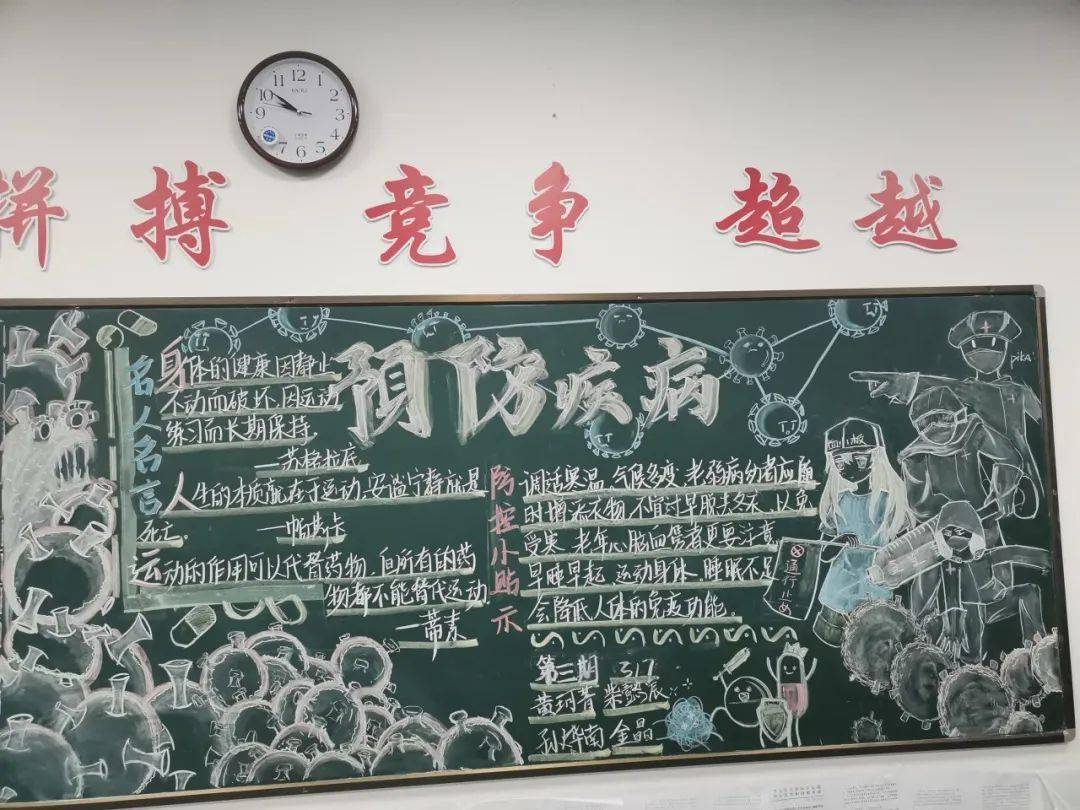 12
11
1
10
2
9
3
4
7
5
6
拼搏 竞争 超越
预防疾病
名人名言
身体的健康因静止
不动而破坏,因运动
练习而长期保持
—苏格拉底
人生的本质就在于运动,安谧宁静就是
死亡.
—帕斯卡
运动的作用可以代替药物,但所有的药
物都不能替代运动.
—蒂素
防控小贴示
调适寒温,气候多变,老弱病幼者应随
时增添衣物,不宜过早脱去冬衣,以免
受寒,老年心脑血管者更要注意
早睡早起,运动身体,睡眠不足
会降低人体的免疫功能.
第三期 317
黄珂普 柴懿宸
孙烨南 金晶
小板
通行止め
pika